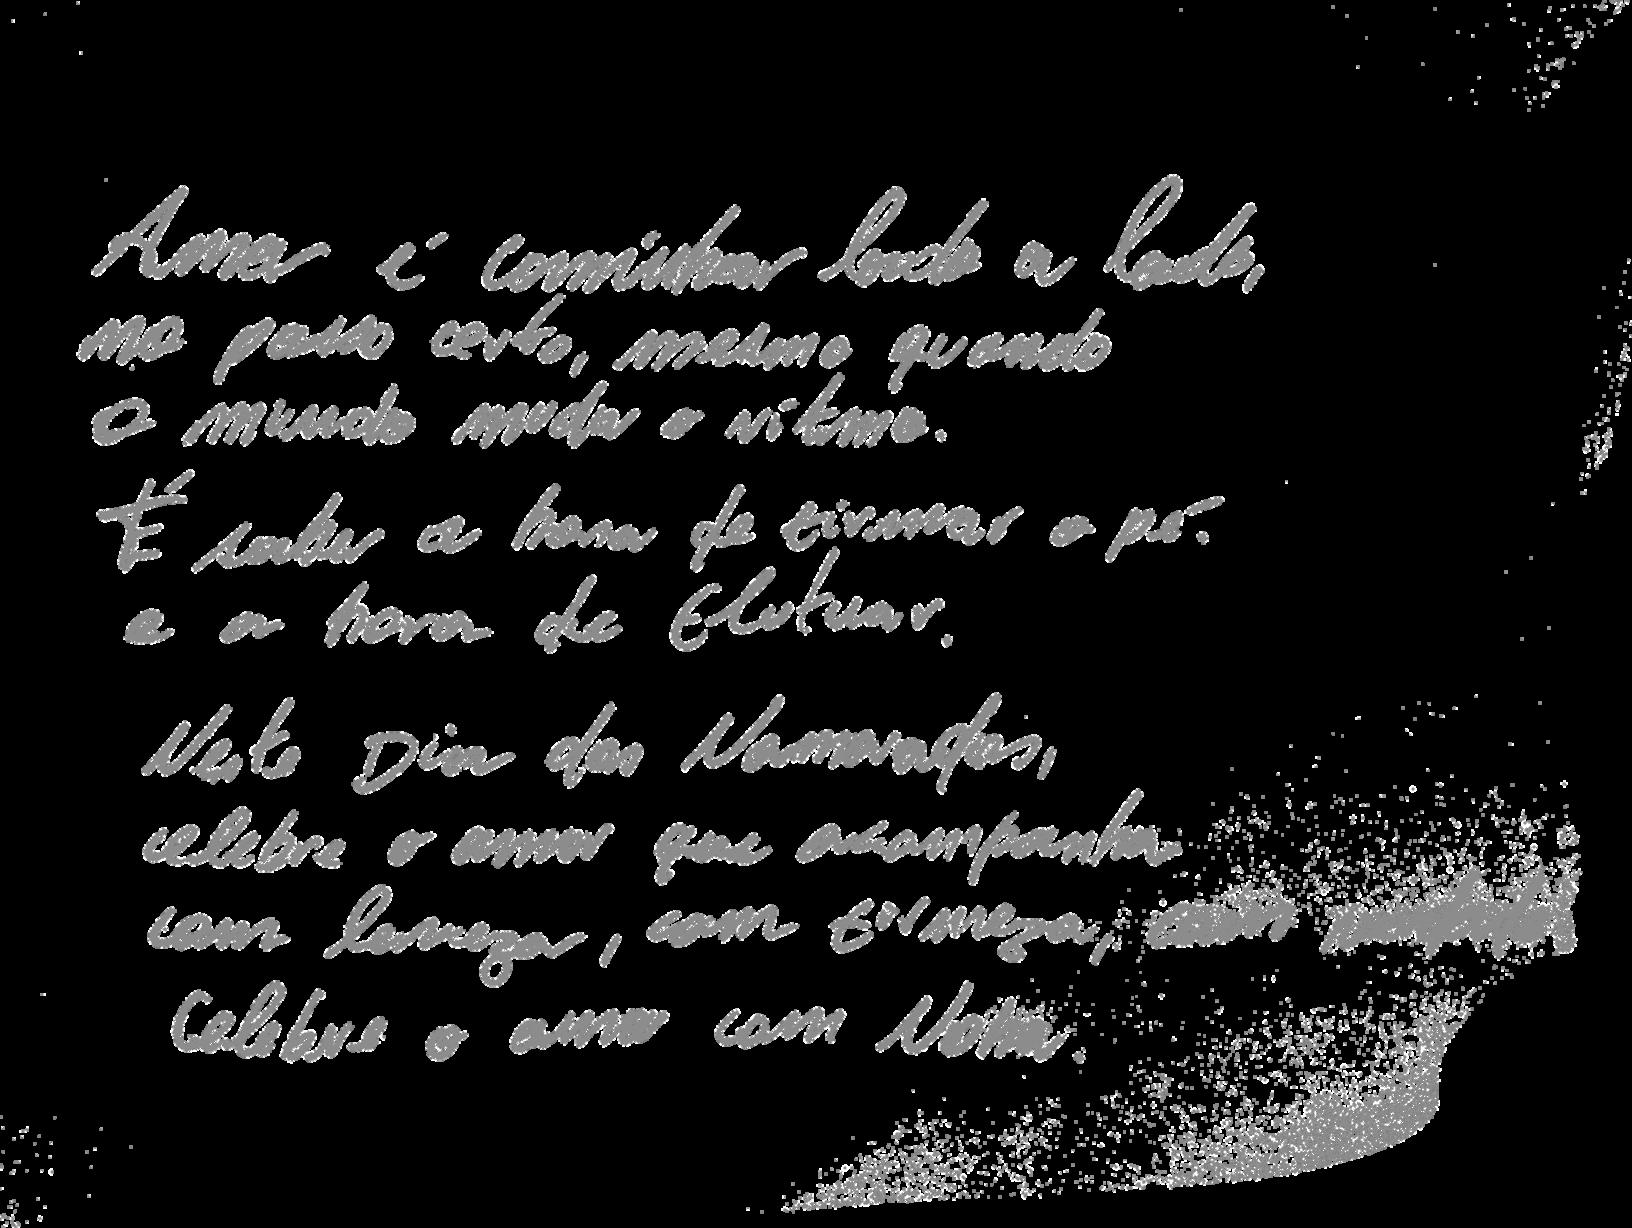 Amar é caminhar lado a lado,
no passo certo, mesmo quando
o mundo muda o ritmo.
É saber a hora de firmar o pé.
e a hora de flutuar.
Neste Dia dos Namorados,
celebre o amor que acompanha
com leveza, com firmeza, com
Celebre o amor com